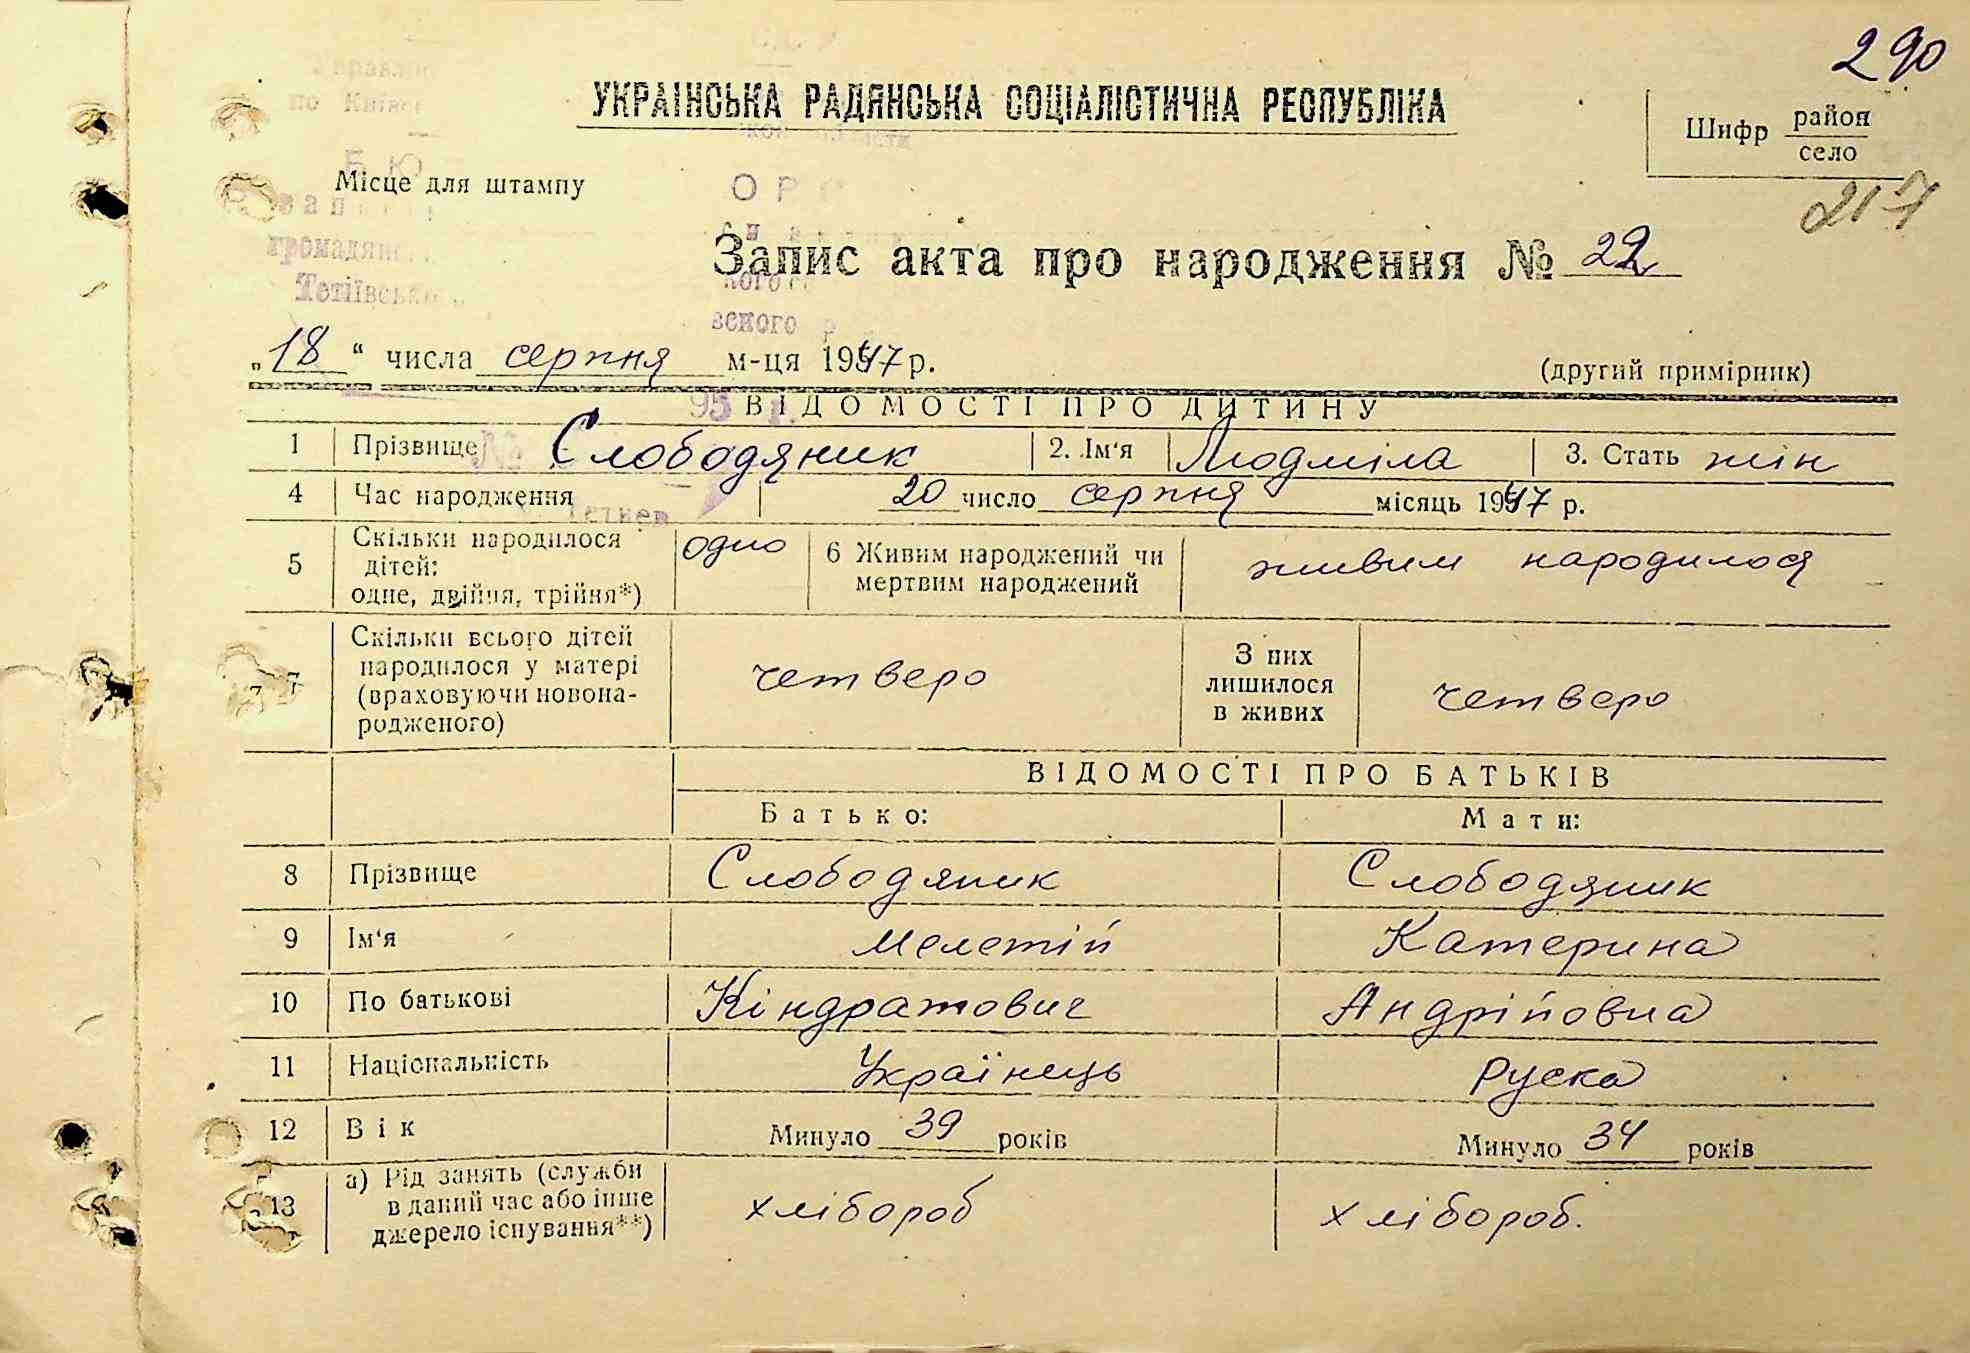 290
УКРАЇНСЬКА РАДЯНСЬКА СОЦІАЛІСТИЧНА РЕСПУБЛІКА
Шифр район
село
217
Місце для штампу
громадян
Тетіївсько
Запис акта про народження № 22
„18“ числа серпня м-ця 1947 р.
(другий примірник)
ВІДОМОСТІ ПРО ДИТИНУ
1 Прізвище Слободяник 2. Ім'я Людміла 3. Стать жін
4 Час народження 20 число серпня місяць 1947 р.
5 Скільки народилося
дітей:
одне, двійня, трійня*) одно 6 Живим народжений чи
мертвим народжений живим народилося
7 Скільки всього дітей
народилося у матері
(враховуючи новона-
родженого) четверо З них
лишилося
в живих четверо
ВІДОМОСТІ ПРО БАТЬКІВ
Батько: Мати:
8 Прізвище Слободяник Слободяник
9 Ім'я Мелетій Катерина
10 По батькові Кіндратович Андріївна
11 Національність Українець Руска
12 Вік Минуло 39 років Минуло 34 років
13 а) Рід занять (служби
в даний час або інше
джерело існування**) хлібороб хлібороб.